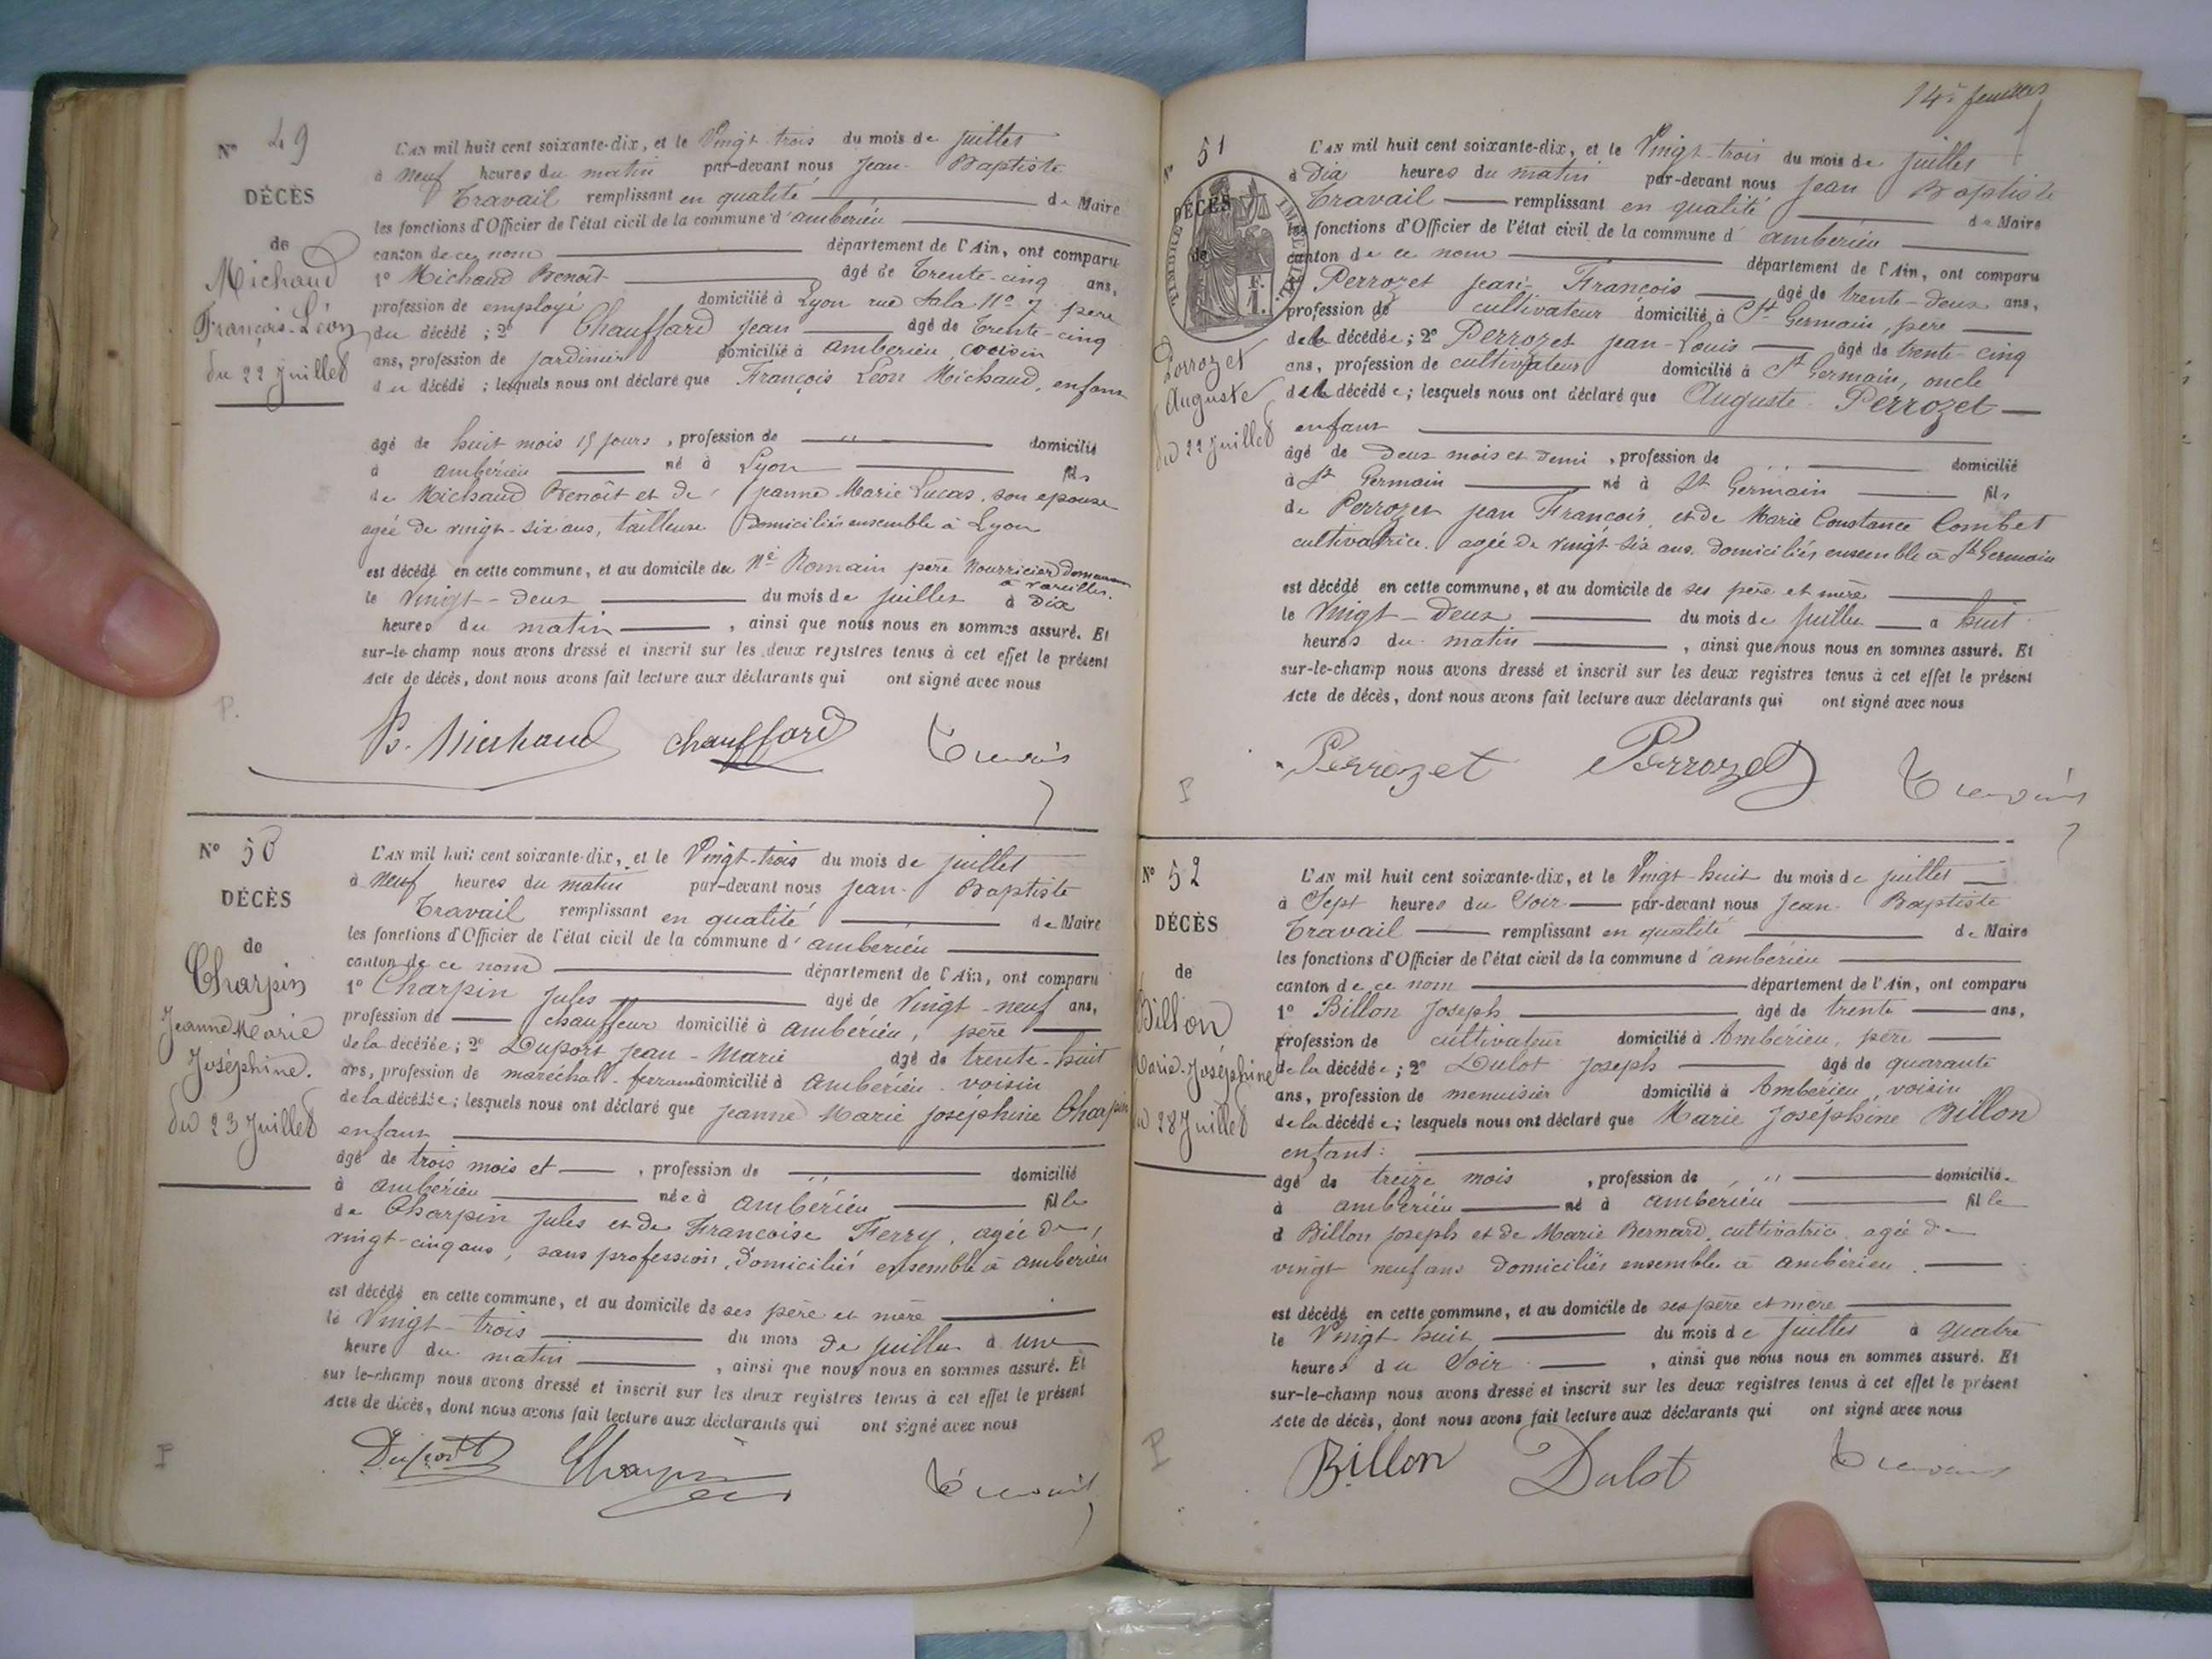 N° 49
DÉCÈS
de
Michaud
François-Léon
du 22 Juillet
L'AN mil huit cent soixante-dix, et le Vingt-trois du mois de juillet
à neuf heures du matin par-devant nous Jean-Baptiste
Travail remplissant en qualité de Maire
les fonctions d'Officier de l'état civil de la commune d'ambérieu
canton de ce nom département de l'Ain, ont comparu
1° Michaud Benoît âgé de trente-cinq ans,
profession de employé domicilié à Lyon rue Sala n° 7 père
du décédé ; 2° Chauffard Jean âgé de trente-cinq
ans, profession de jardinier domicilié à amberieu, voisin
du décédé ; lesquels nous ont déclaré que François Léon Michaud, enfant
âgé de huit mois 15 jours, profession de " domicilié
à ambérieu né à Lyon fils
de Michaud Benoît et de Jeanne Marie Lucas, son epouse
agée de vingt-six ans, tailleuse domiciliés ensemble à Lyon
est décédé en cette commune, et au domicile du Né Romain père nourricier
à Vareilles.
le Vingt-deux du mois de juillet à dix
heures du matin, ainsi que nous nous en sommes assuré. Et
sur-le-champ nous avons dressé et inscrit sur les deux registres tenus à cet effet le présent
Acte de décès, dont nous avons fait lecture aux déclarants qui ont signé avec nous
B. Michaud Chauffard
P.
N° 50
DÉCÈS
de
Charpin
Jeanne Marie
Joséphine.
du 23 Juillet
L'AN mil huit cent soixante-dix, et le Vingt-trois du mois de juillet
à neuf heures du matin par-devant nous Jean-Baptiste
Travail remplissant en qualité de Maire
les fonctions d'Officier de l'état civil de la commune d'amberieu
canton de ce nom département de l'Ain, ont comparu
1° Charpin Jules âgé de Vingt-neuf ans,
profession de chauffeur domicilié à ambérieu, père
de la décédée ; 2° Duport Jean-Marie âgé de trente-huit
ans, profession de maréchall-ferrant domicilié à amberieu voisin
de la décédée ; lesquels nous ont déclaré que Jeanne Marie Joséphine Charpin
enfant
âgé de trois mois et, profession de " domicilié
à ambérieu née à ambérieu fille
de Charpin Jules et de Francoise Ferry, agée de
vingt-cinq ans, sans profession, domiciliés ensemble à amberieu
est décédé en cette commune, et au domicile de ses père et mère
le Vingt-trois du mois de juillet à une
heure du matin, ainsi que nous nous en sommes assuré. Et
sur le-champ nous avons dressé et inscrit sur les deux registres tenus à cet effet le présent
Acte de décès, dont nous avons fait lecture aux déclarants qui ont signé avec nous
Duport Charpin
P
14e feuillet
N° 51
DÉCÈS
de
TIMBRE IMPÉRIAL
F.
1.
Perrozet
Auguste
du 22 Juillet
L'AN mil huit cent soixante-dix, et le Vingt-trois du mois de juillet
à dix heures du matin par-devant nous Jean Baptiste
Travail remplissant en qualité de Maire
les fonctions d'Officier de l'état civil de la commune d'amberieu
canton de ce nom département de l'Ain, ont comparu
Perrozet Jean-François âgé de trente-deux ans,
profession de cultivateur domicilié à St Germain, père
de la décédée ; 2° Perrozet Jean-Louis âgé de trente-cinq
ans, profession de cultivateur domicilié à St Germain, oncle
de la décédée ; lesquels nous ont déclaré que Auguste Perrozet
enfant
âgé de deux mois et demi, profession de " domicilié
à St Germain né à St Germain fils
de Perrozet Jean François, et de Marie Constance Combet
cultivatrice, agée de vingt-six ans, domiciliés ensemble à St Germain
est décédé en cette commune, et au domicile de ses père et mère
le Vingt-deux du mois de juillet à huit
heures du matin, ainsi que nous nous en sommes assuré. Et
sur-le-champ nous avons dressé et inscrit sur les deux registres tenus à cet effet le présent
Acte de décès, dont nous avons fait lecture aux déclarants qui ont signé avec nous
Perrozet Perrozet
P
N° 52
DÉCÈS
de
Billon
Marie-Joséphine
du 28 Juillet
L'AN mil huit cent soixante-dix, et le Vingt-huit du mois de juillet
à Sept heures du Soir par-devant nous Jean-Baptiste
Travail remplissant en qualité de Maire
les fonctions d'Officier de l'état civil de la commune d'ambérieu
canton de ce nom département de l'Ain, ont comparu
1° Billon Joseph âgé de trente ans,
profession de cultivateur domicilié à Ambérieu, père
de la décédée ; 2° Dulot Joseph âgé de quarante
ans, profession de menuisier domicilié à Ambérieu, voisin
de la décédée ; lesquels nous ont déclaré que Marie Joséphine Billon
enfant :
âgé de treize mois, profession de " domicilié.
à ambérieu né à ambérieu fille
d Billon Joseph et de Marie Bernard, cultivatrice agée de
vingt neuf ans domiciliés ensemble à ambérieu.
est décédé en cette commune, et au domicile de ses père et mère
le Vingt-huit du mois de juillet à quatre
heures du Soir, ainsi que nous nous en sommes assuré. Et
sur-le-champ nous avons dressé et inscrit sur les deux registres tenus à cet effet le présent
Acte de décès, dont nous avons fait lecture aux déclarants qui ont signé avec nous
Billon Dulot
P